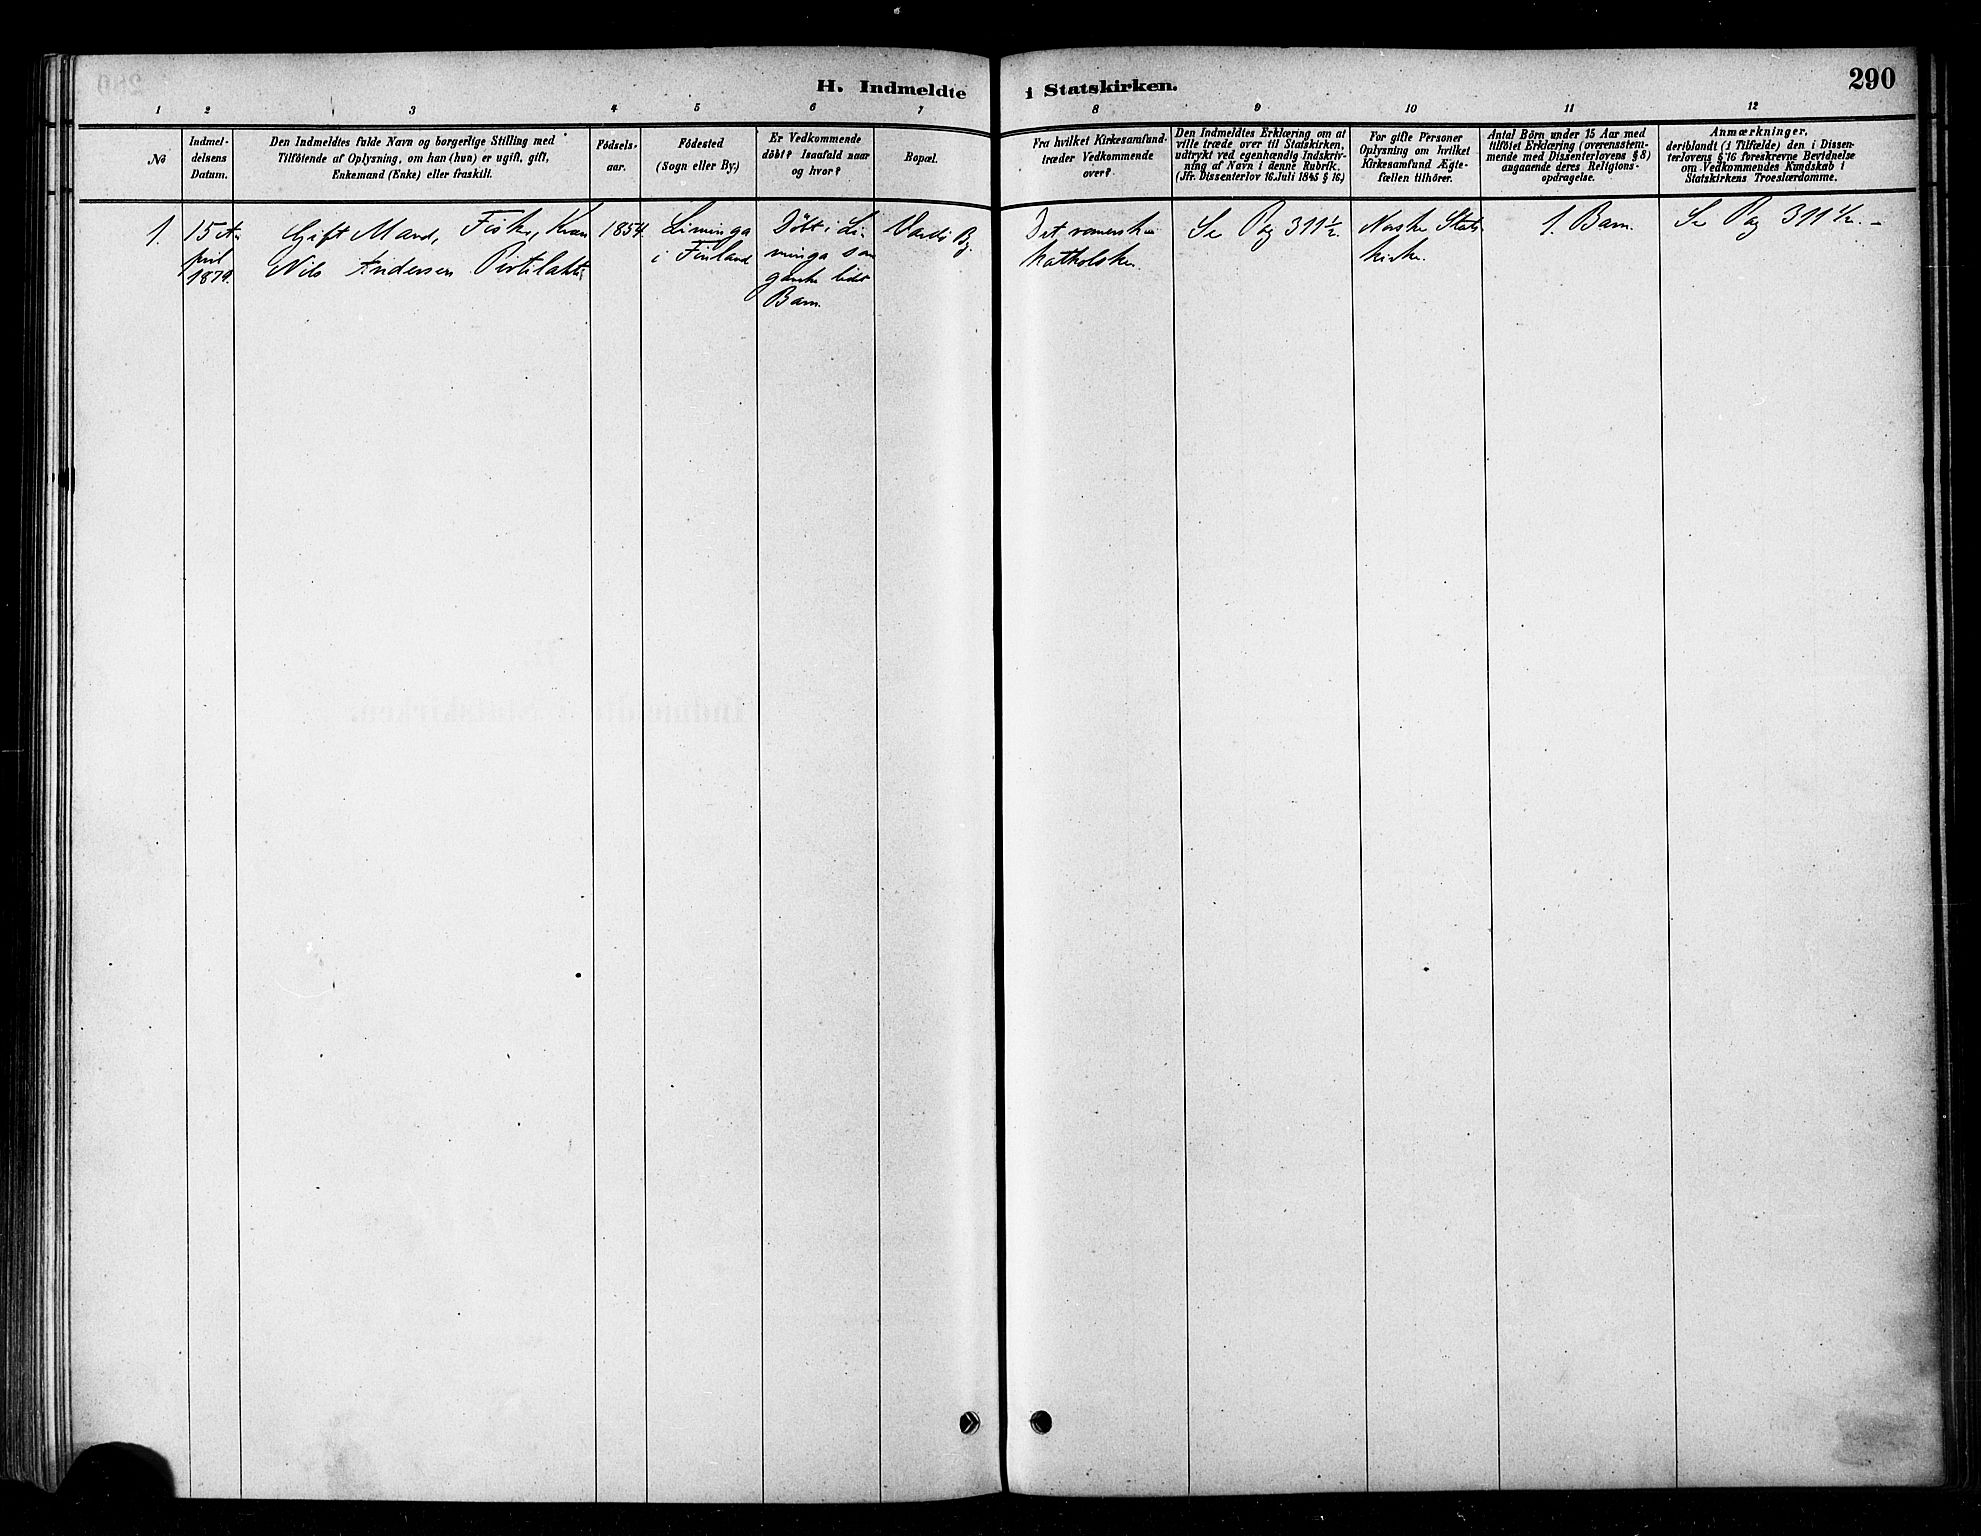 H. Indmeldte i Statskirken.
290
1 2 3 4 5 6 7 8 9 10 11 12
No
Indmel-
delsens
Datum.
Den Indmeldtes fulde Navn og borgerlige Stilling med
Tilföiende af Oplysning, om han (hun) er ugift, gift,
Enkemand (Enke) eller fraskilt.
Födsels-
aar.
Födested
(Sogn eller By.)
Er Vedkommende
döbt? Isaafald naar
og hvor?
Bopæl.
Fra hvilket Kirkesamfund
træder Vedkommende
over?
Den Indmeldtes Erklæring om at
ville træde over til Statskirken,
udtrykt ved egenhændig Indskriv-
ning af Navn i denne Rubrik.
(Jfr. Dissenterlov 16. Juli 1845 § 16.)
For gifte Personer
Oplysning om hvilket
Kirkesamfund Ægte-
fællen tilhörer.
Antal Börn under 15 Aar med
tilföiet Erklæring (overensstem-
mende med Dissenterlovens § 8)
angaaende deres Religions-
opdragelse.
Anmærkninger,
deriblandt (i Tilfælde) den i Dissen-
terlovens § 16 foreskrevne Bevidnelse
om Vedkommendes Kundskab i
Statskirkens Troeslærdomme.
1.
15 A-
pril
1879.
Gift Mand, Fisker, Kvæn
Nils Andersen
1854
Liminga
i Finland
Döbt i Li-
minga som
ganske lidet
Barn.
Vardö By.
Det romersk-
katholske.
Se Pag 311½.
Norske Stats-
kirke.
1. Barn.
Se Pag 311½. -